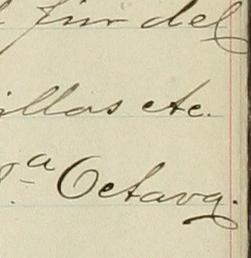 fin del
illos etc.
a Octava.